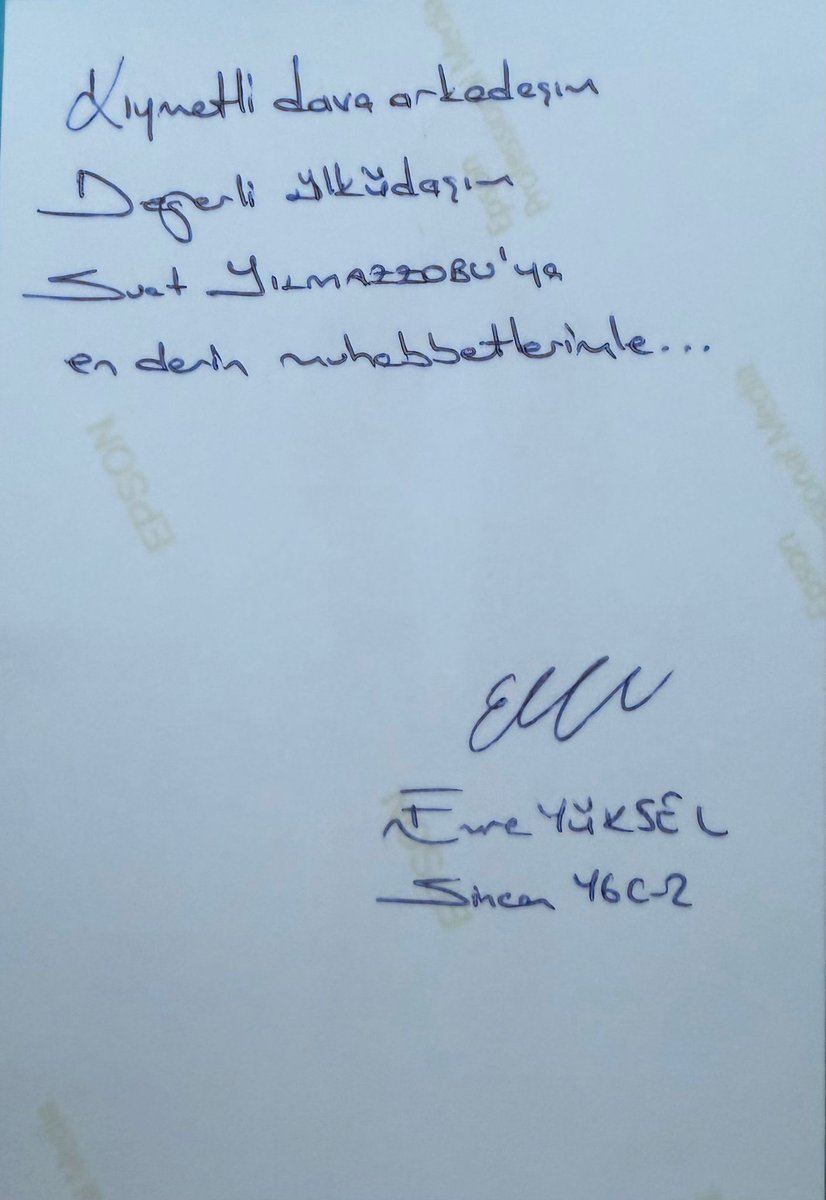 Kıymetli dava arkadaşım
Değerli ülküdaşım
Suat YILMAZZOBU'ya
en derin muhabbetlerimle...
Emre YÜKSEL
Sincan YGC-2
EPSON
Epson